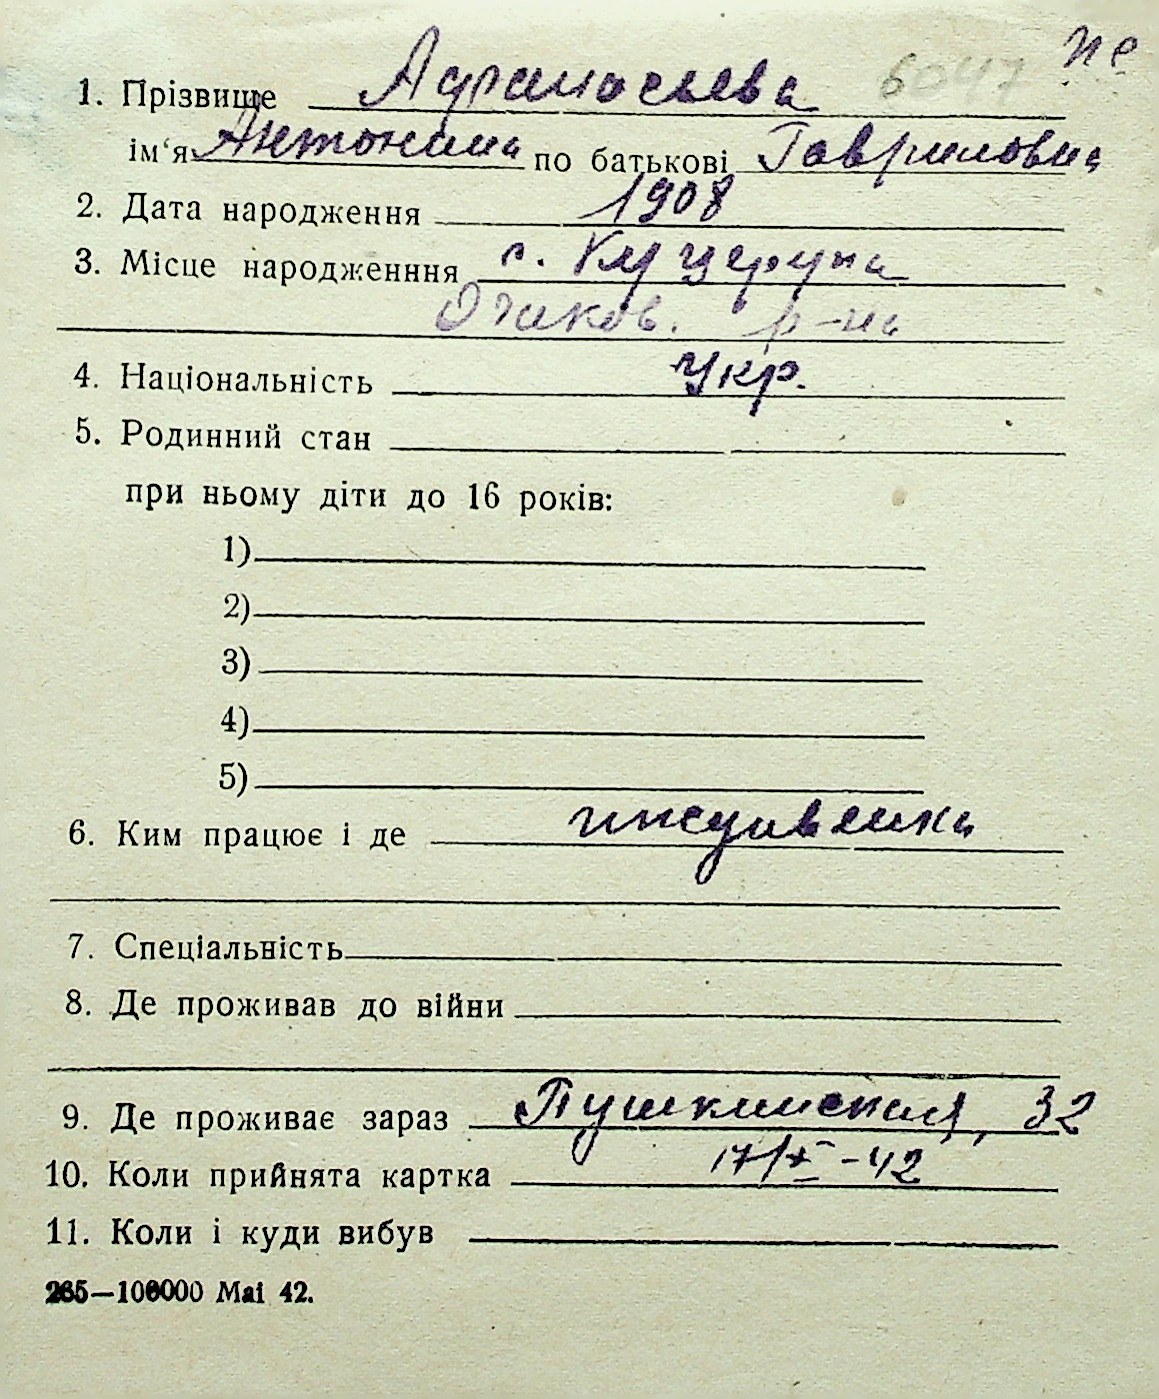 1. Прізвище Афанасьева 6047 не
ім‘я Антонина по батькові Гавриловна
2. Дата народження 1908
3. Місце народженння с. Куцурупа
Очаков. р-на
4. Національність Укр.
5. Родинний стан
при ньому діти до 16 років:
1)
2)
3)
4)
5)
6. Ким працює і де иждивенка
7. Спеціальність
8. Де проживав до війни
9. Де проживає зараз Пушкинская, 32
10. Коли прийнята картка 17/X-42
11. Коли і куди вибув
265—100000 Mai 42.